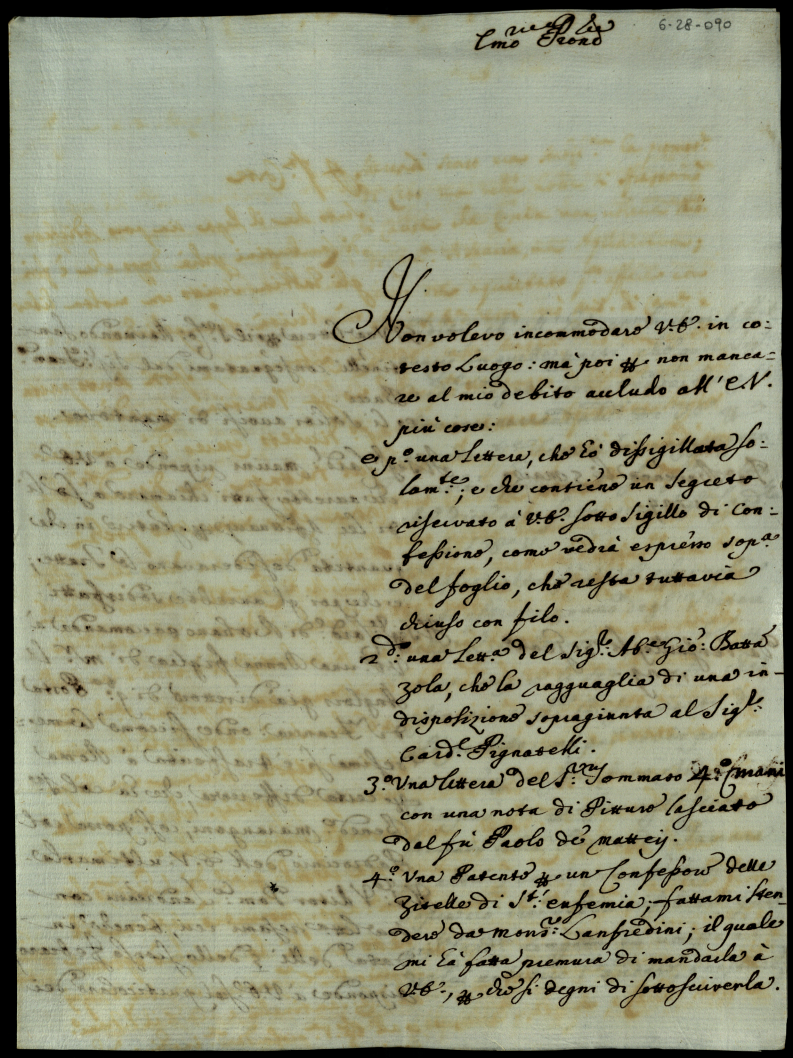 6-28-090
Emo Prone
Non volevo incommodare V.E. in co:
testo Luogo: mà poi non manca-
re al mio debito accludo all' E.V.
più cose:
e p.º una Lettera, che hò dissigillata so-
lam.te; e che contiene un segreto
riservato à V.E. sotto sigillo di Con-
fessione, come vedrà espresso sop.a
del foglio, che resta tuttavia
chiuso con filo.
2.d una Lett.a del Sig.r Ab.e Gio: Batta
Zola, che la ragguaglia di una in-
disposizione sopragiunta al Sig.r
Card.l Pignatelli.
3.º Una lettera del Tommaso
con una nota di Pitture lasciate
dal fù Paolo de' Matteij.
4.º Una Patente un Confessore delle
Zitelle di S.t' eufemia, fattami sten-
dere da Mons.r Lanfredini; il quale
mi hà fatta premura di mandarla à
V.E., che si degni di sottoscriverla.